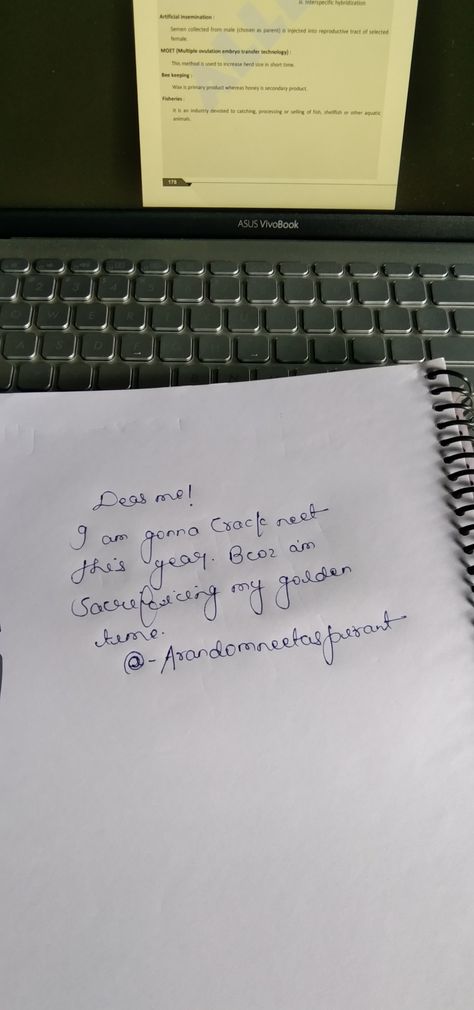 iii. Interspecific hybridization
Artificial insemination :
Semen collected from male (chosen as parent) is injected into reproductive tract of selected
female.
MOET (Multiple ovulation embryo transfer technology) :
This method is used to increase herd size in short time.
Bee keeping :
Wax is primary product whereas honey is secondary product.
Fisheries :
It is an industry devoted to catching, processing or selling of fish, shellfish or other aquatic
animals.
178
ASUS VivoBook
2 3 4 5
W E R T
A S D F
Dear me!
I am gonna Crack neet
this year. Bcoz a'm
Sacrificing my golden
time.
@-Arandomneetaspirant